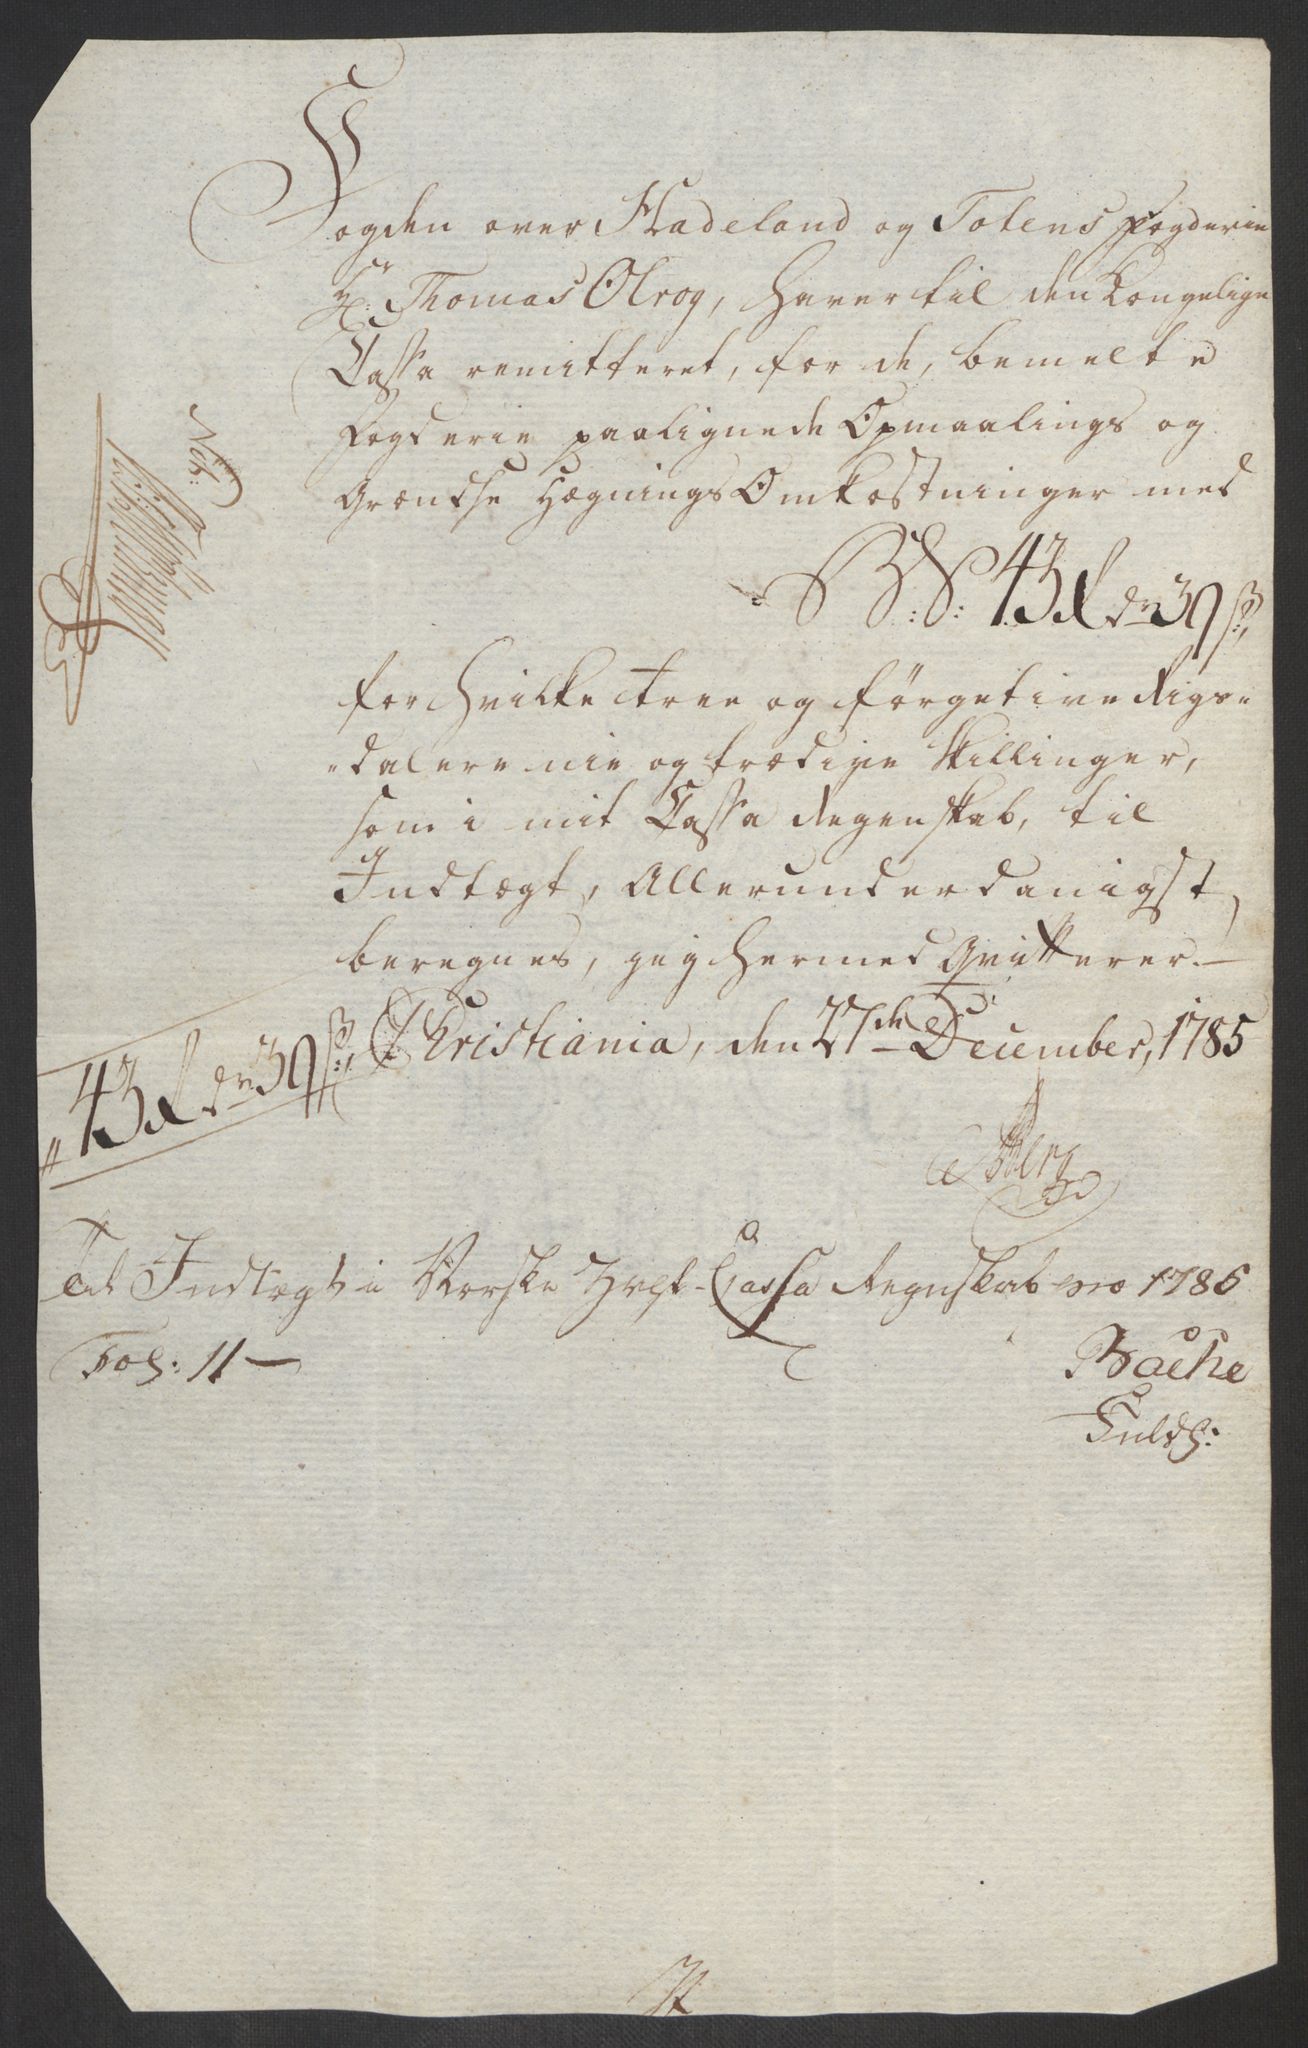 Fogden over Hadeland og Totens Fogderie
Hr: Thomas Olrog, haver til den Kongelige
Cassa remitteret, for de, bemelte
Fogderie paalignede Opmaalings og
Grændse Hægnings Omkostninger med
43 rd 39 s:,
for hvilke tree ogførgetive Rigs-
-dalere nie og trædive Skillinger,
som i mit Cassa Regenskab, til
Indtægt, Allerunderdanigst,
beregnes, jeg hermed Qvitterer.
Christiania, den 27de December, 1785
Not:
43 rd 39 s:,
Berg
Til Indtægt i Norske Cassa Regnskab pro 1785
Fol: 11
Bache
Fuldm: